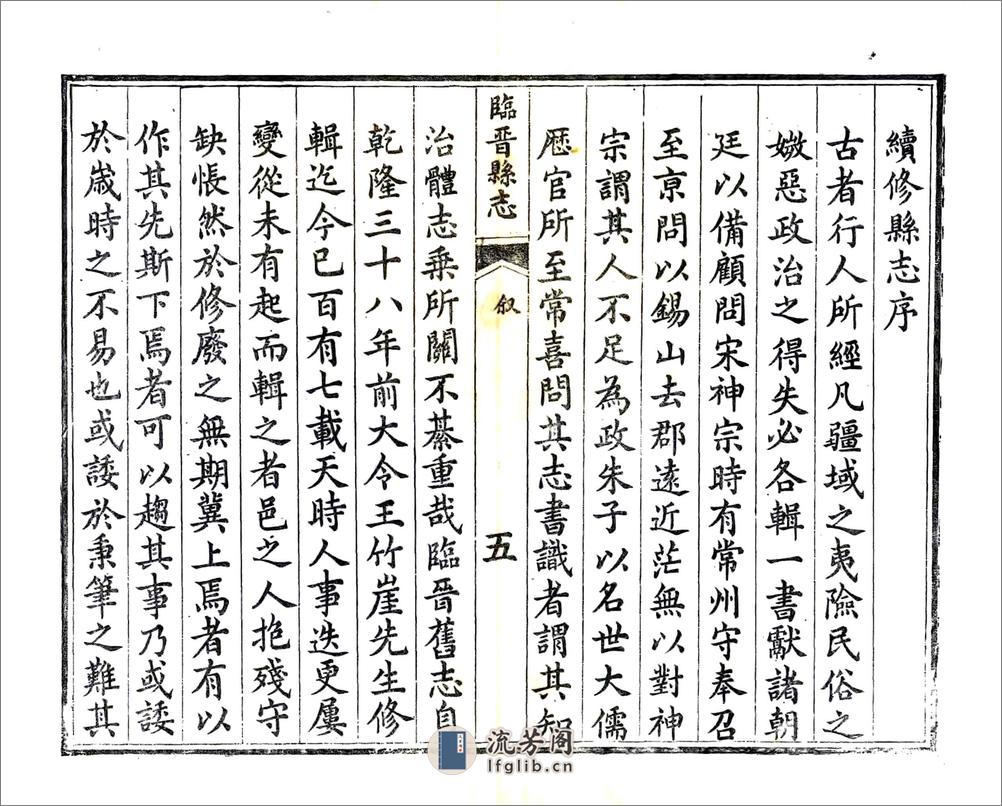 續修縣志序
古者行人所經凡疆域之夷險民俗之
媺惡政治之得失必各輯一書獻諸朝
廷以備顧問宋神宗時有常州守奉召
至京問以錫山去郡遠近茫無以對神
宗謂其人不足為政朱子以名世大儒
歷官所至常喜問其志書識者謂其知
臨晉縣志
叙
五
治體志乘所關不綦重哉臨晉舊志自
乾隆三十八年前大令王竹崖先生修
輯迄今已百有七載天時人事迭更屢
變從未有起而輯之者邑之人抱殘守
缺悵然於修廢之無期冀上焉者有以
作其先斯下焉者可以趨其事乃或諉
於歲時之不易也或諉於秉筆之難其
流芳阁
lfglib.cn